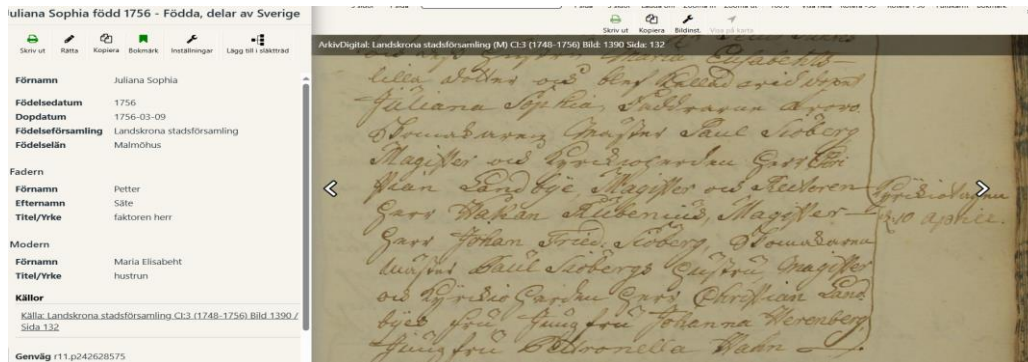 Juliana Sophia född 1756 - Födda, delar av Sverige
Skriv ut Rätta Kopiera Bokmärk Inställningar Lägg till i släktträd
Förnamn Juliana Sophia
Födelsedatum 1756
Dopdatum 1756-03-09
Födelseförsamling Landskrona stadsförsamling
Födelselän Malmöhus
Fadern
Förnamn Petter
Efternamn Säte
Titel/Yrke faktoren herr
Modern
Förnamn Maria Elisabeht
Titel/Yrke hustrun
Källor
Källa: Landskrona stadsförsamling CI:3 (1748-1756) Bild 1390 /
Sida 132
Genväg r11.p242628575
Skriv ut Kopiera Bildinst. Visa på karta
ArkivDigital: Landskrona stadsförsamling (M) CI:3 (1748-1756) Bild: 1390 Sida: 132
Maria Elisabehts
lilla dotter och blef kallad wid dopet
Juliana Sophia, Faddrarne woro
Skomakaren Mäster Paul Siöberg
Magister och Kyrkioherden Herr Chri
stian Landbye, Magister och Rectoren
Herr Håkan Rubenius, Magister
Herr Johan Fried. Siöberg, Skomakaren
Mäster Paul Siöbergs Hustru, Magister
och Kyrkioherden Herr Christian Land
byes fru Jungfru Johanna Herenberg
Jungfru Petronella Hahn
Kyrkiotagen
d. 10 Aprile.